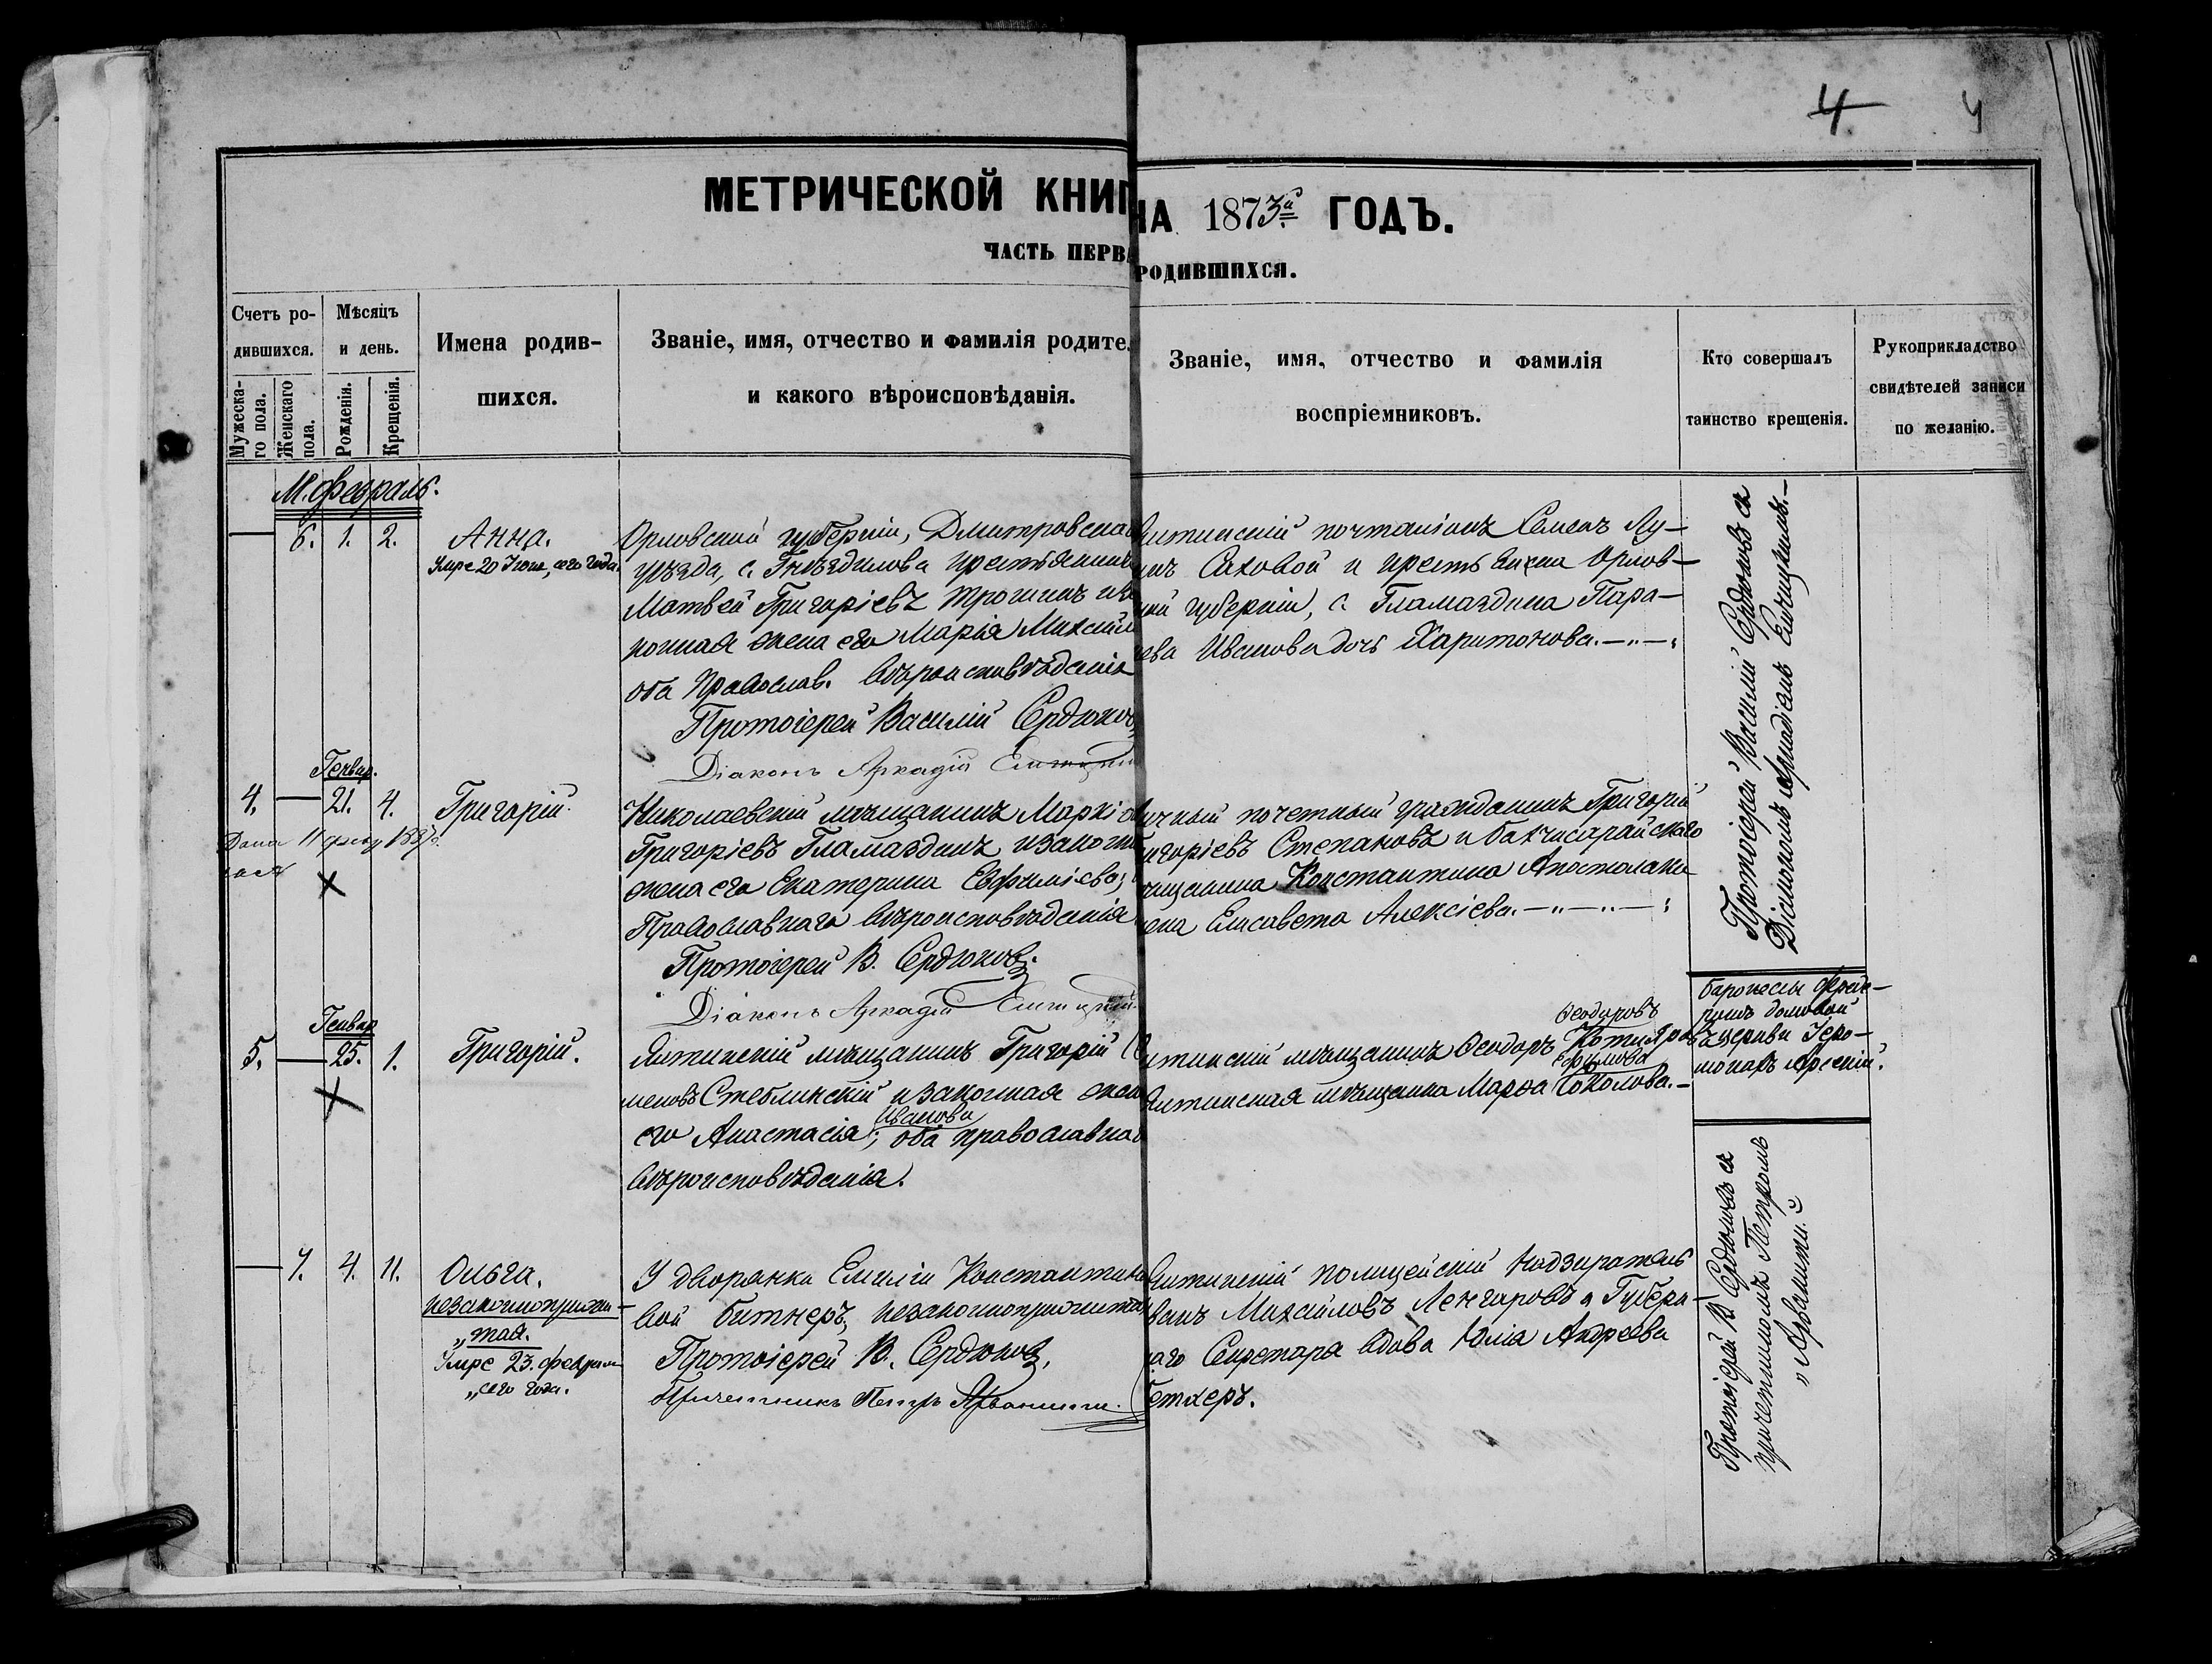 4 4
МЕТРИЧЕСКОЙ КНИГ
НА 1873й ГОДЪ.
ЧАСТЬ ПЕРВА
РОДИВШИХСЯ.
Счетъ ро-
дившихся.
Мужеска-
го пола.
Женскаго
пола.
Мѣсяцъ
и день.
Рожденія.
Крещенія.
Имена родив-
шихся.
Званіе, имя, отчество и фамилія родите
и какого вѣроисповѣданія.
Званіе, имя, отчество и фамилія
воспріемниковъ.
Кто совершалъ
таинство крещенія.
Рукоприкладство
свидѣтелей записи
по желанію.
М. Февраль.
— 6. 1. 2.
Анна.
Умре 20 Іюня, сего года.
Орловской губерніи, Дмитровска
уѣзда, с. Гнѣздилова крестьянинъ
Матвей Григоріевъ Трошинъ и за
конная жена его Марія Михаил
оба Православ. вѣроисповѣданія
Протоіерей Василій Сердюковъ
Діаконъ Аркадій
Ялтинскій почталіонъ Семенъ Лу-
кинъ Саховой и крестьянка Орлов-
ской губерніи, с. Гламаздина Пара-
ева Иванова дочь Харитонова.
Протоіерей Василій Сердюковъ съ
Діакономъ Аркадіемъ
Генвар.
4. — 21. 4.
Дана 11 1887
Григорій.
Николаевскій мѣщанинъ Маркі
Григоріевъ Гламаздинъ и закон
жена его Екатерина Евфиміева,
Православнаго вѣроисповѣданія
Протоіерей В. Сердюковъ.
Діаконъ Аркадій
ичный почетный гражданинъ Григорій
игоріевъ Степановъ и бахчисарайскаго
мѣщанина Константина Апостолаки
жена Елисавета Алексіева.
Генвар
5. — 25. 1.
Григорій.
Ялтинскій мѣщанинъ Григорій
меновъ Стеблинскій и законная жена
его Анастасія Иванова; оба православна
вѣроисповѣданія.
Ялтинскій мѣщанинъ Ѳеодоръ Ѳеодоровъ Котляровъ
Ялтинская мѣщанка Марѳа Ефимова Соколова.
баронессы Фреде-
риксъ домовой
церкви Іеро-
монахъ Арсеній.
— 7. 4. 11.
Ольга.
незаконноприжи-
„тая.
Умре 23. февраля
„сего года.
У дворянки Емиліи Константино
вой Битнеръ, незаконноприжита
Протоіерей В. Сердюковъ,
Причетникъ Петръ Арванити.
Ялтинскій полицейскій Надзиратель
ванъ Михайловъ Ленгаровъ и Губерн-
скаго Секретаря вдова Юлія Андреева
Протоіерей В. Сердюковъ съ
причетникомъ Петромъ
„Арванити.